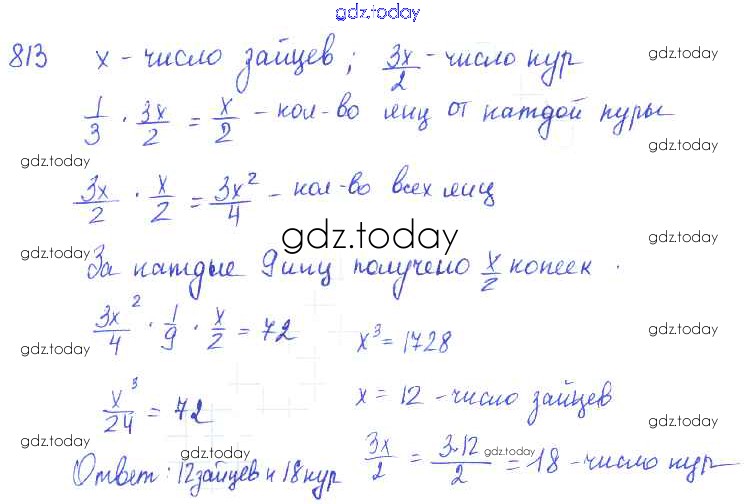 gdz.today
813 x - число зайцев; 3x/2 - число кур
gdz.today
1/3 · 3x/2 = x/2 - кол-во яиц от каждой куры
gdz.today
gdz.today
3x/2 · x/2 = 3x²/4 - кол-во всех яиц
gdz.today
gdz.today
gdz.today
За каждые 9 яиц получено x/2 копеек.
3x²/4 · 1/9 · x/2 = 72 x³ = 1728
gdz.today
gdz.today
x³/24 = 72 x = 12 - число зайцев
gdz.today
gdz.today
3x/2 = 3·12/2 = 18 - число кур
gdz.today
gdz.today
Ответ: 12 зайцев и 18 кур
gdz.today